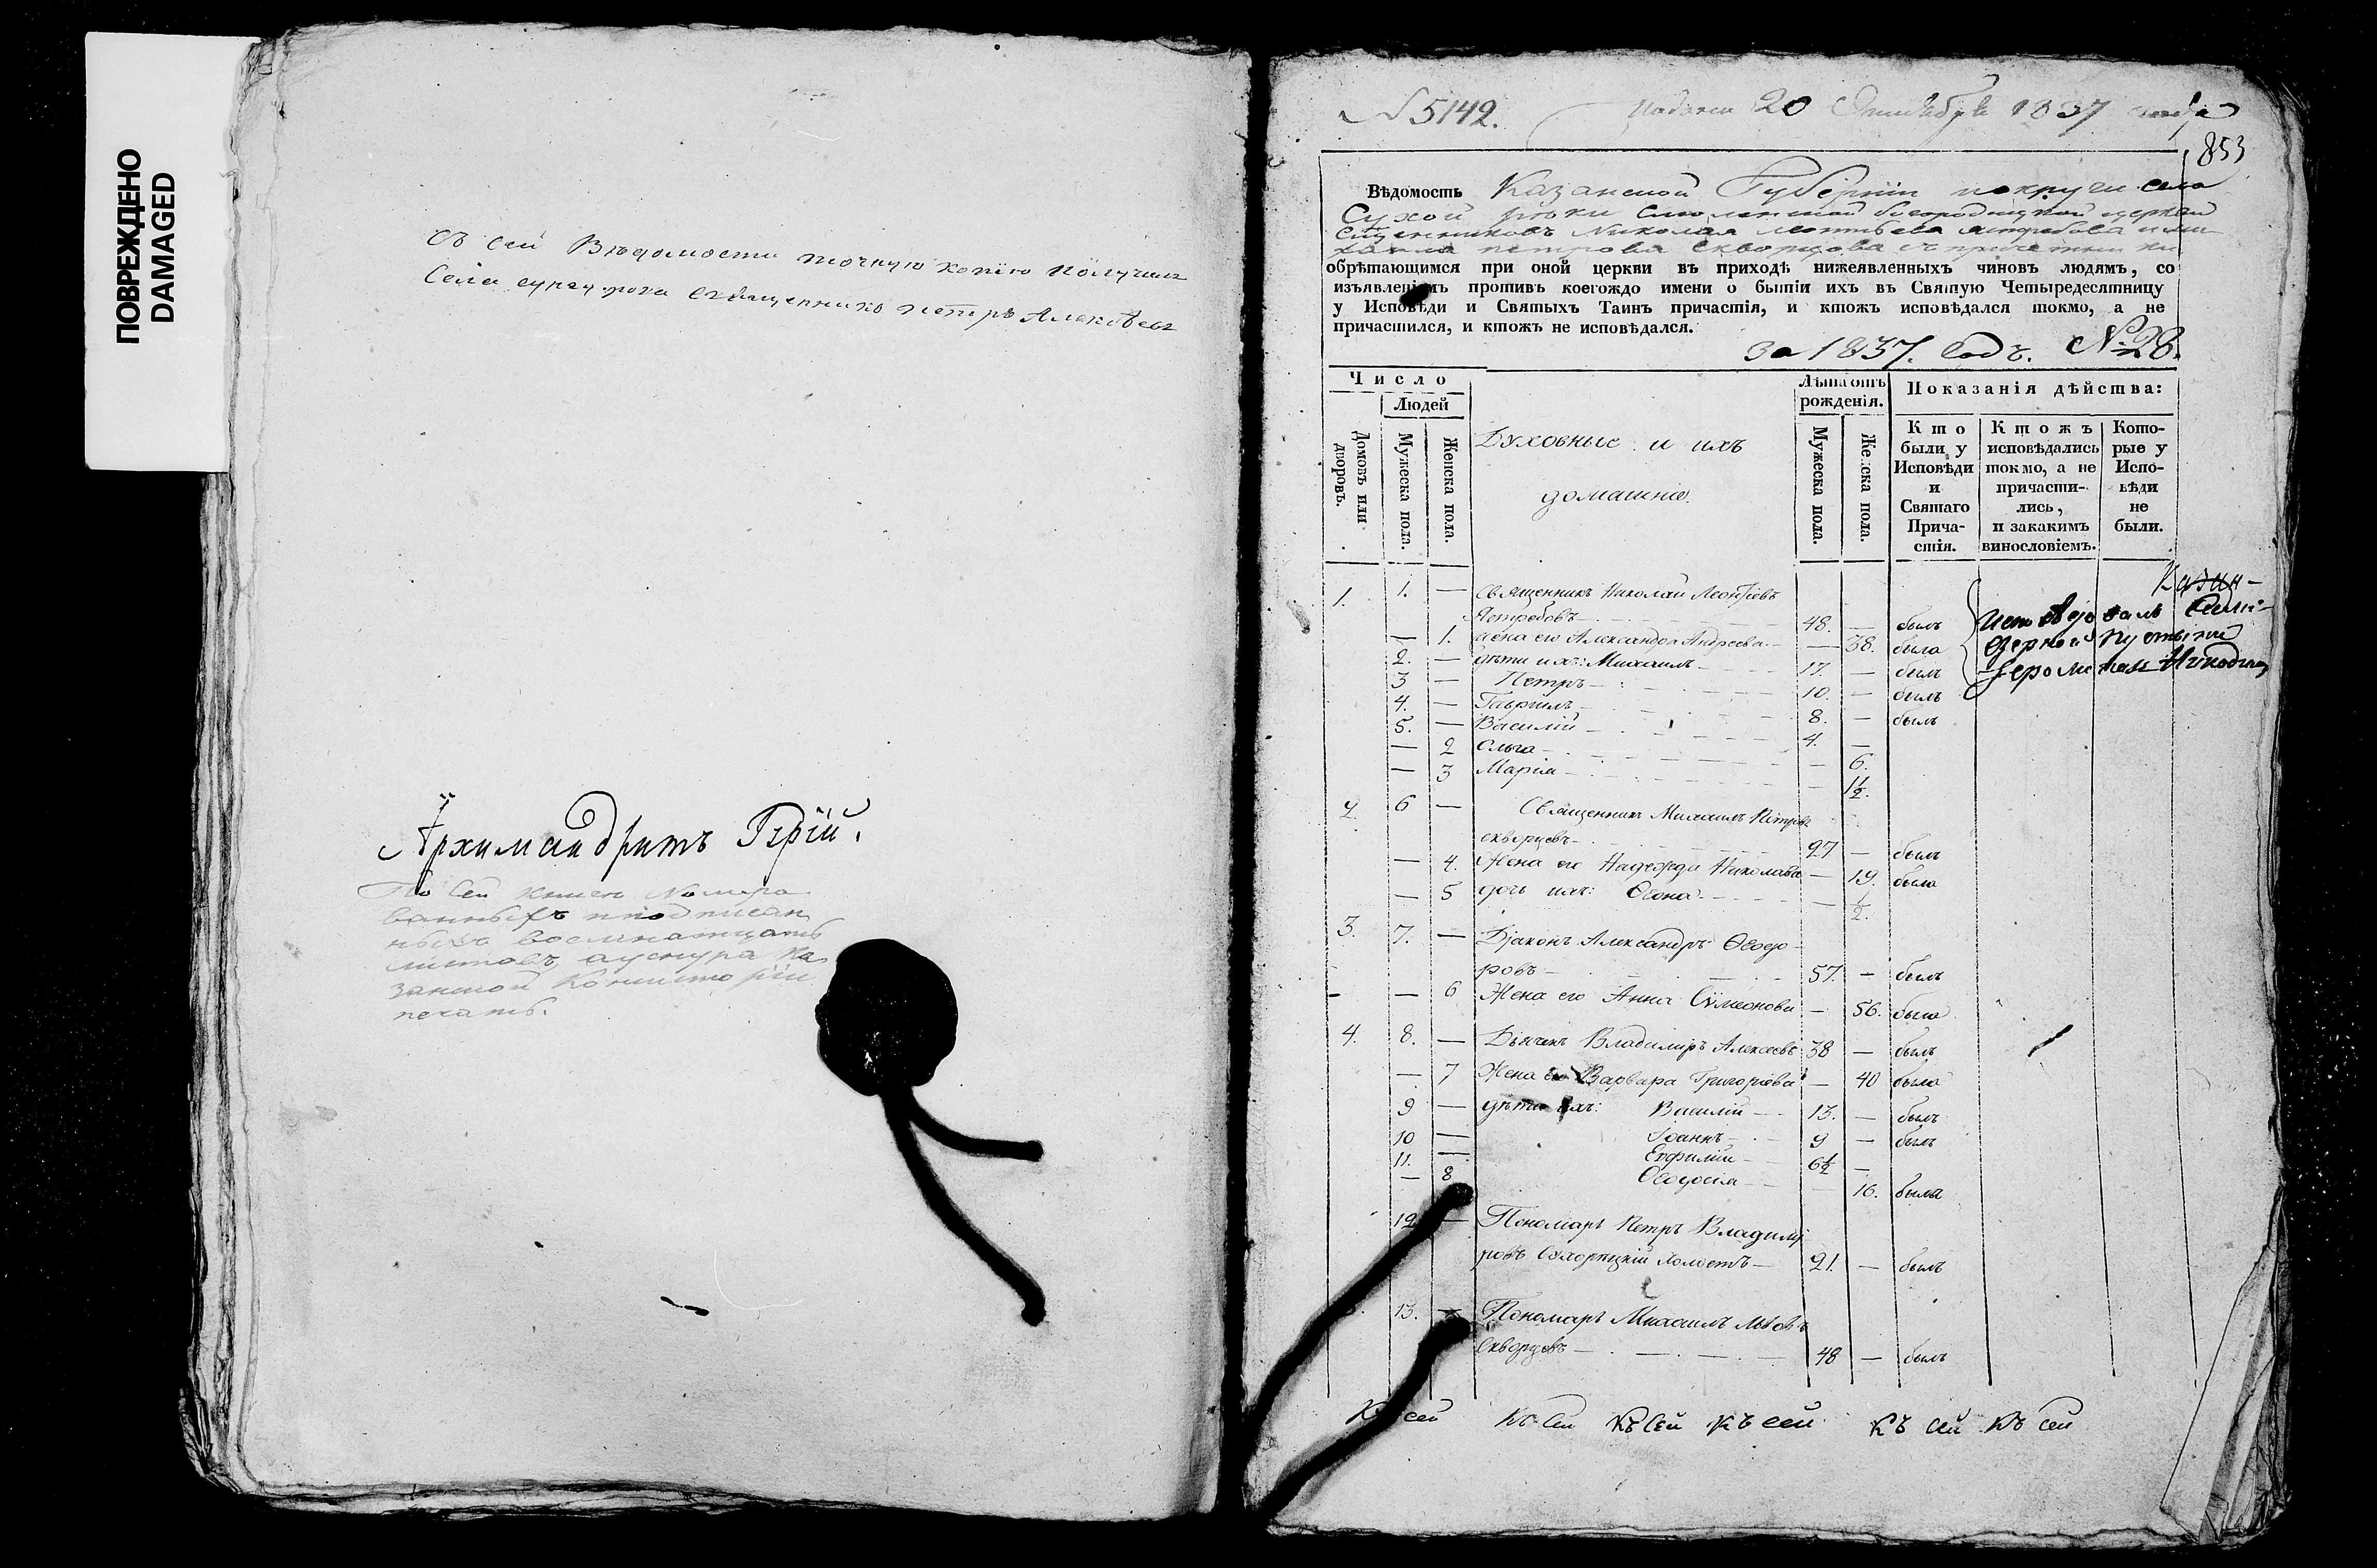 ПОВРЕЖДЕНО
DAMAGED
Съ сей Вѣдомости точную копію получилъ
Села Священникъ Петръ Алексѣевъ
Архимандритъ Гурій.
По сей книге Номеро
ванныхъ и подписан
ныхъ восемнатцать
листовъ, а уснура Ка
занской Консисторіи
печать.
№ 5142.
Подана 20 Октября 1837 года
853
Вѣдомость Казанской Губерніи села
Сухой рѣки Смоленской богородицкой церкви
Священниковъ Николая Леонтьева Ястребова и Ми
хаила Петрова Скворцова съ причетники
обрѣтающимся при оной церкви въ приходѣ нижеявленныхъ чиновъ людямъ, со
изъявленіемъ противъ коегождо имени о бытіи ихъ въ Святую Четыредесятницу
у Исповѣди и Святыхъ Таинъ причастія, и ктожъ исповѣдался токмо, а не
причастился, и ктожъ не исповѣдался.
За 1837. Годъ. № 28.
Число
Людей
Домовъ или дворовъ.
Мужеска пола.
Женска пола.
Духовные и ихъ
домашніе.
Лѣта отъ рожденія.
Мужеска пола.
Женска пола.
Показанія дѣйства:
Кто были у Исповѣди и Святаго Причастія.
Ктожъ исповѣдались токмо, а не причастились, и закакимъ винословіемъ.
Которые у Исповѣди не были.
1. 1. — Священникъ Николай Леонтіевъ
Ястребовъ — 48. — былъ
— 1. жена его Александра Андреева — — 38. была
2. — дѣти ихъ: Михаилъ — 17. — былъ
3 — Петръ — 10. — былъ
4. — Гавриилъ — 8. — былъ
5. — Василій — 4. —
— 2 Ольга — — 6.
— 3 Марія — — 1½.
Исповѣдовалъ Седмі-
Казан-
озерной пустыни
Іеромонахъ Никодимъ
2. 6 — Священникъ Михаилъ Петровъ
Скворцовъ — 27 — былъ
— 4. Жена его Надежда Николаева — 19. была
— 5 дочь ихъ: Ѳеона — — ½.
3. 7. — Діаконъ Александръ Ѳеодо-
ровъ — 57. — былъ
— — 6 Жена его Анна Сѵмеонова — 56. была
4. 8. — Дьячекъ Владиміръ Алексеевъ 38 — былъ
— 7 Жена его Варвара Григоріева — 40 была
9 — дѣти ихъ: Василій — 13. — былъ
10 — Іоаннъ — 9 — былъ
11. — Евфимій — 6½ —
— 8 Ѳеодосія — — 16. была
12 — Пономарь Петръ Владими
ровъ холостъ — 21. — былъ
13. — Пономарь Михаилъ Львовъ
Скворцовъ — 48 — былъ
Къ сей Къ сей Къ сей Къ сей Къ сей Къ сей